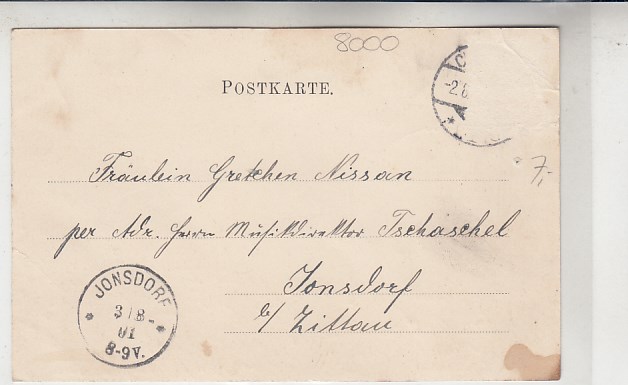 8000
POSTKARTE.
-2.8
7,-
Fräulein Gretchen Nissan
per Adr. Herrn Musikdirektor Tschaschel
Jonsdorf
b/ Zittau
JONSDORF
* 3/8- *
01
8-9V.